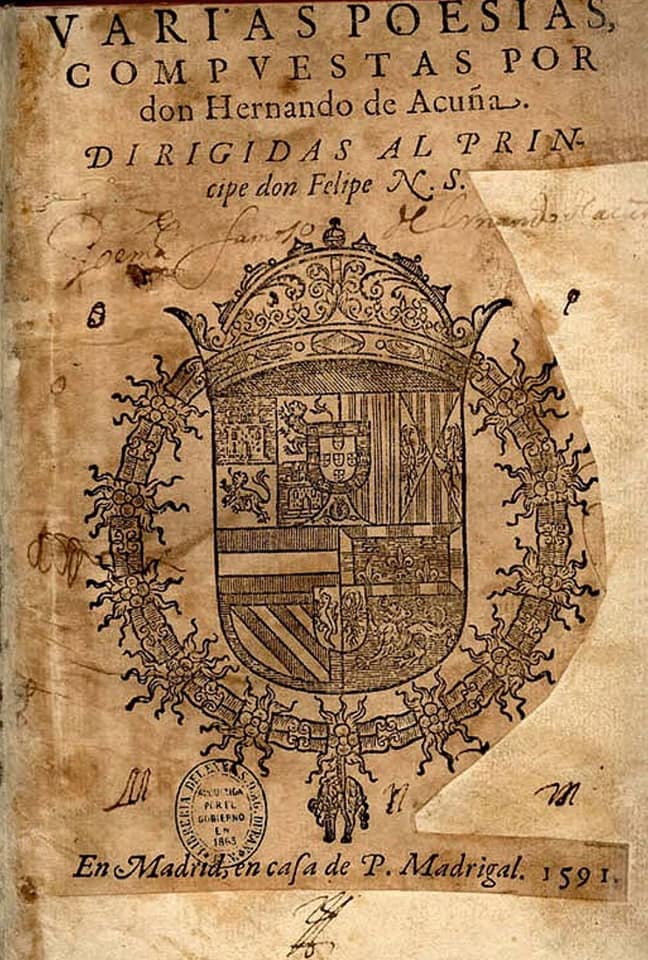 VARIAS POESIAS,
COMPVESTAS POR
don Hernando de Acuña.
DIRIGIDAS AL PRIN-
cipe don Felipe N. S.
Poema famoso de Hernando Acuñ
LIBRERIA DEL EXC. S. D. AG. DURAN
ADQUIRIDA
POR EL
GOBIERNO
EN
1863
En Madrid, en caſa de P. Madrigal. 1591.